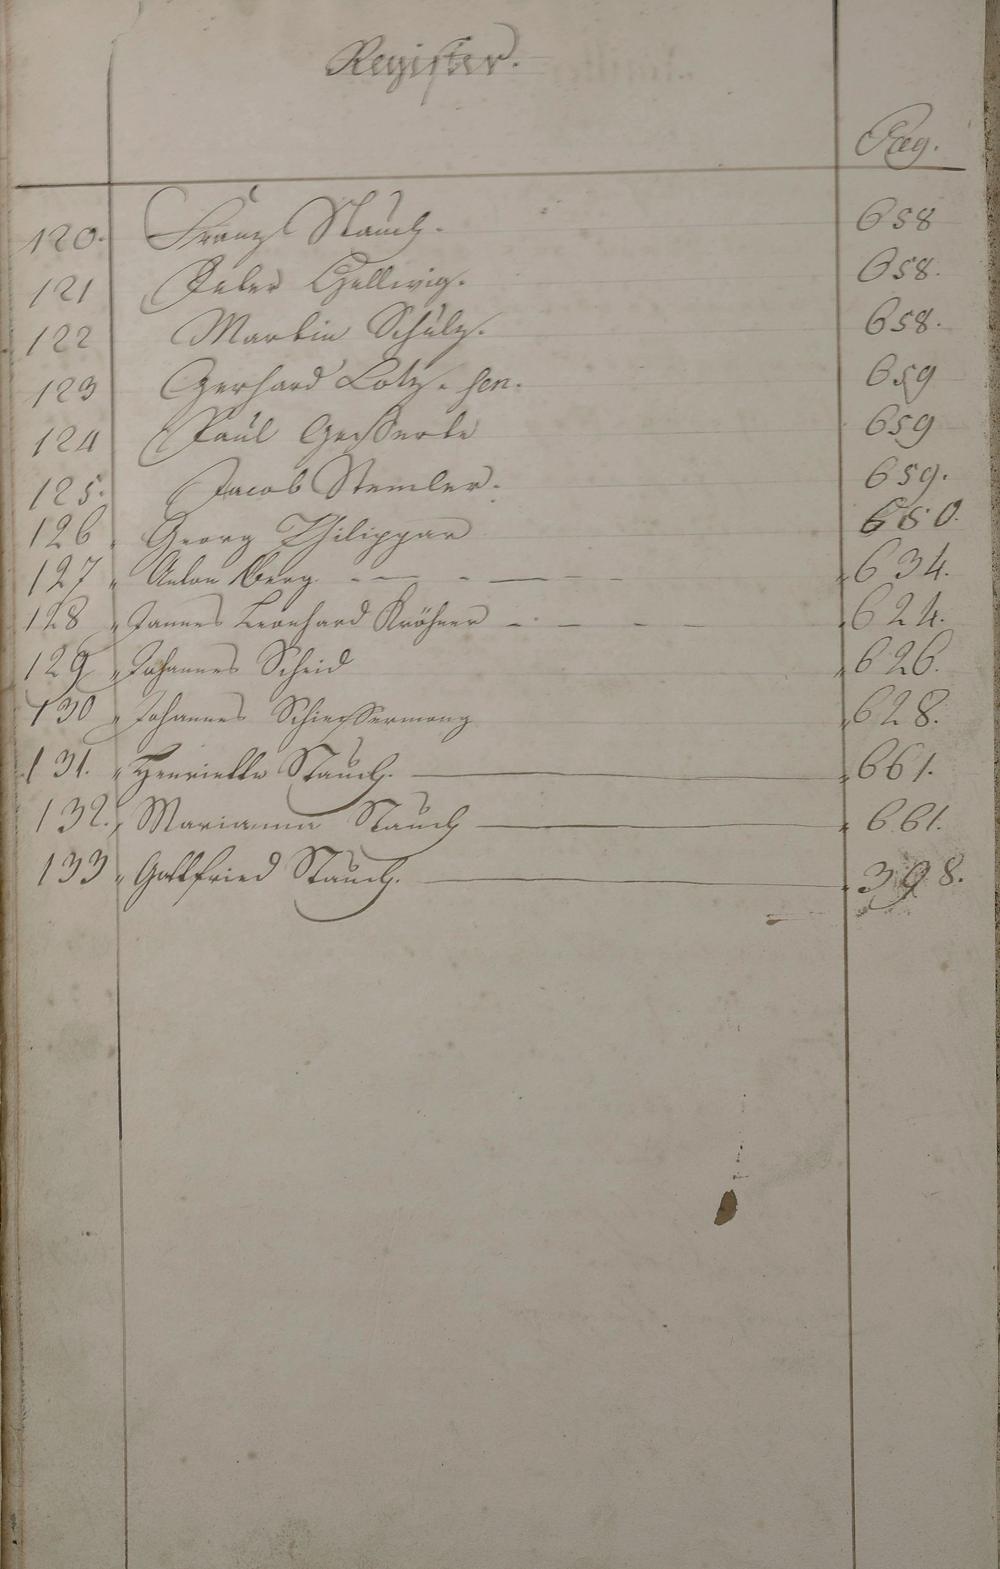 Register.
Pag.
120. Franz Stauch. 658
121 Peter Hellwig. 658.
122 Martin Schulz. 658.
123 Gerhard Lotz. sen. 659
124 Paul 659
125. Jacob Stemler. 659.
126 " Georg Philippar 650.
127 " Anton Berg. " 634.
128 " Jannes Leonhard Kröhner " 624.
129 " Johannes Scheid " 626.
130 " Johannes " 628.
131. " Henriette Stauch. " 661.
132. " Marianna Stauch " 661.
133 " Gottfried Stauch. " 398.